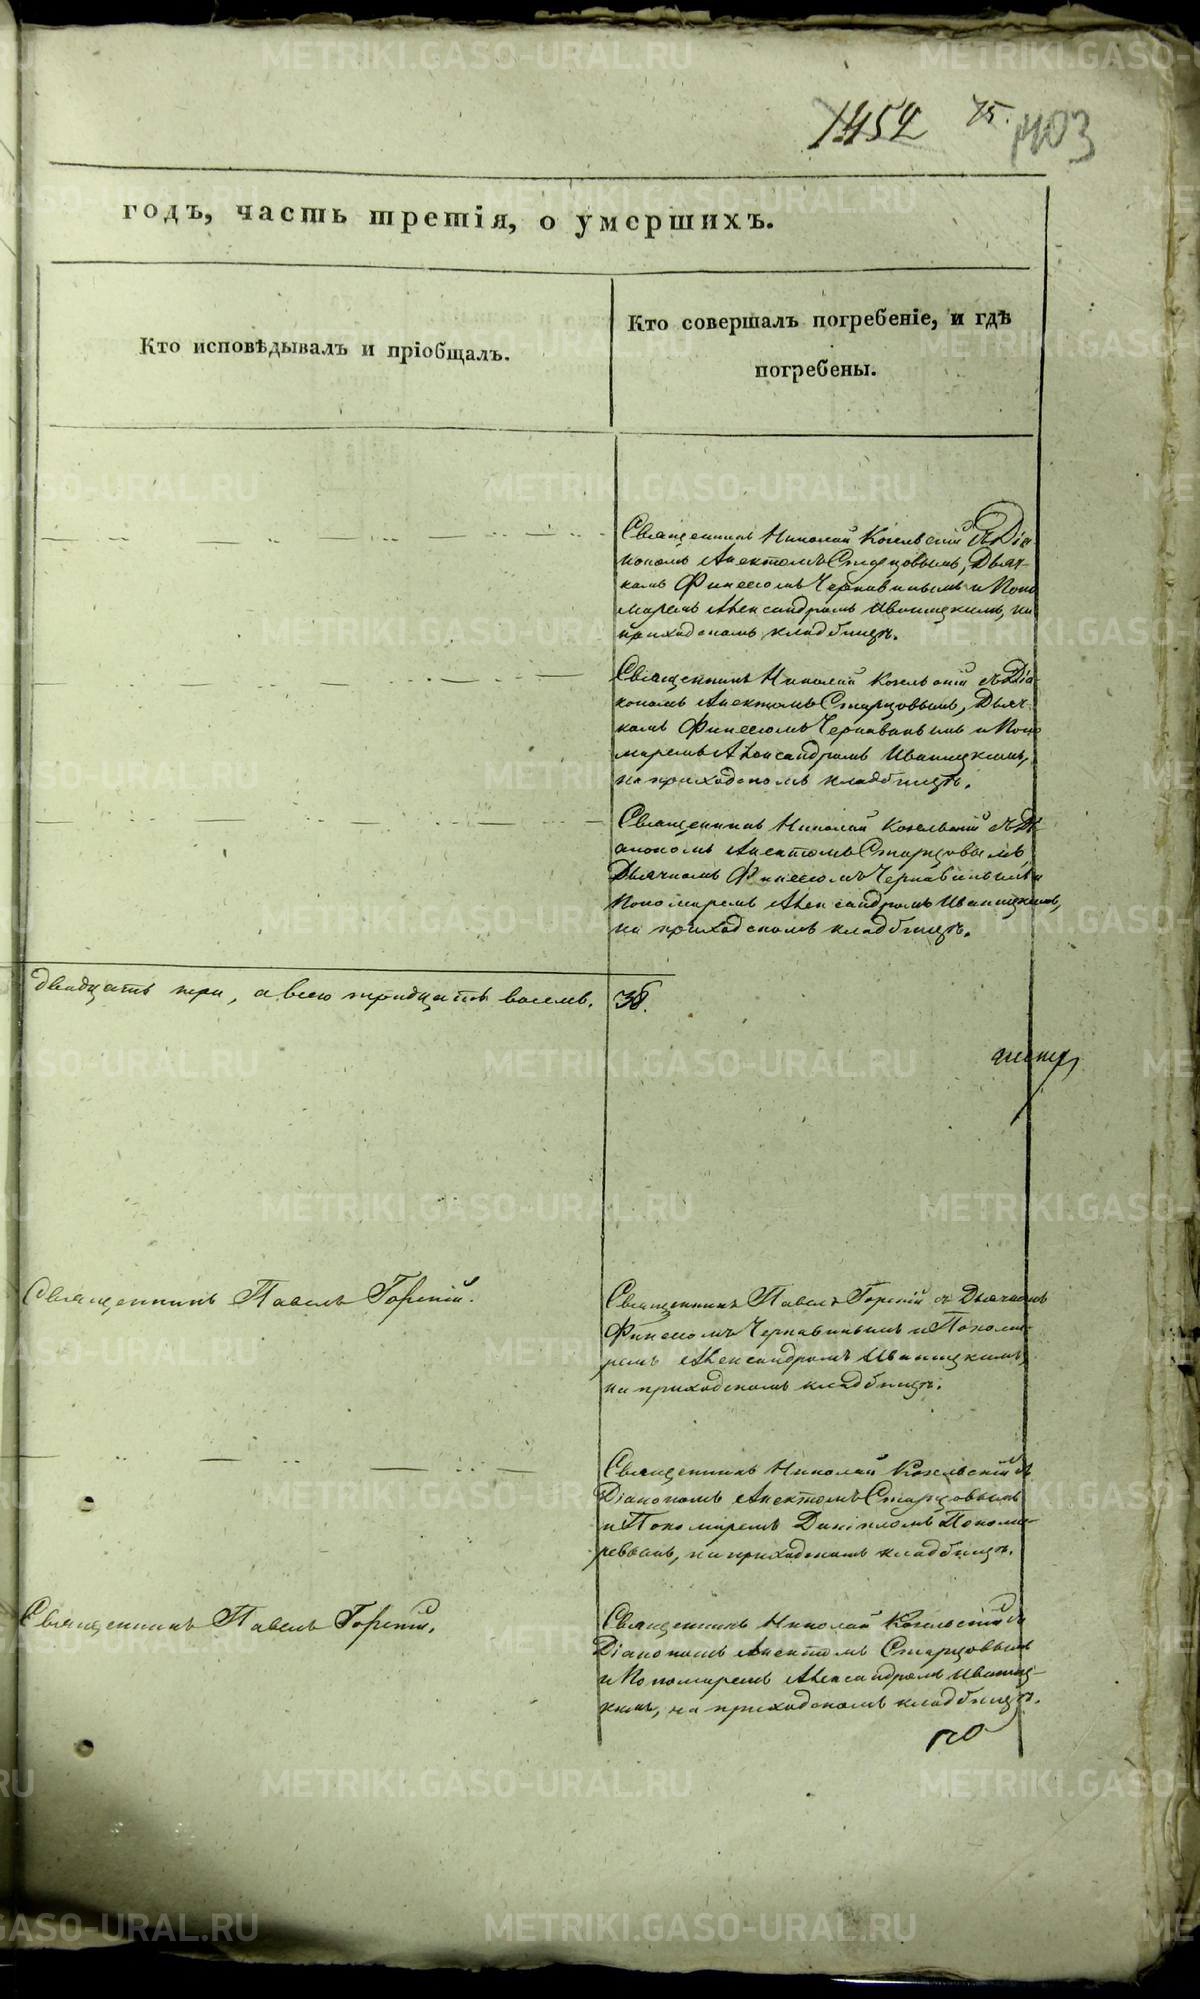 1452 75. 1103
годъ, часть третія, о умершихъ.
Кто исповѣдывалъ и пріобщалъ.
Кто совершалъ погребеніе, и гдѣ
погребены.
Священникъ Николай Козельскій съ Діа-
кономъ Анектомъ Старцовымъ, Дьяч-
комъ Финеесомъ Чернавинымъ и Поно
маремъ Александромъ Иваницкимъ, на
приходскомъ кладбищѣ.
Священникъ Николай Козельскій съ Діа-
кономъ Анектомъ Старцовымъ, Дьяч-
комъ Финеесомъ Чернавинымъ и Поно
маремъ Александромъ Иваницкимъ,
на приходскомъ кладбищѣ.
Священникъ Николай Козельскій съ Ді-
акономъ Анектомъ Старцовымъ
Дьячкомъ Финеесомъ Чернавинымъ и
Пономаремъ Александромъ Иваницкимъ,
на приходскомъ кладбищѣ.
двадцать три, а всего тридцать восемь. 38.
Священникъ Павелъ Горскій.
Священникъ Павелъ Горскій съ Дьячкомъ
Финеесомъ Чернавинымъ и Понома-
ремъ Александромъ Иваницкимъ,
на приходскомъ кладбищѣ.
Священникъ Николай Козельскій съ
Діакономъ Анектомъ Старцовымъ
и Пономаремъ Даніиломъ Понома-
ревымъ, на приходскомъ кладбищѣ.
Священникъ Павелъ Горскій.
Священникъ Николай Козельскій съ
Діакономъ Анектомъ Старцовымъ
и Пономаремъ Александромъ Иваниц-
кимъ, на приходскомъ кладбищѣ.
по
METRIKI.GASO-URAL.RU